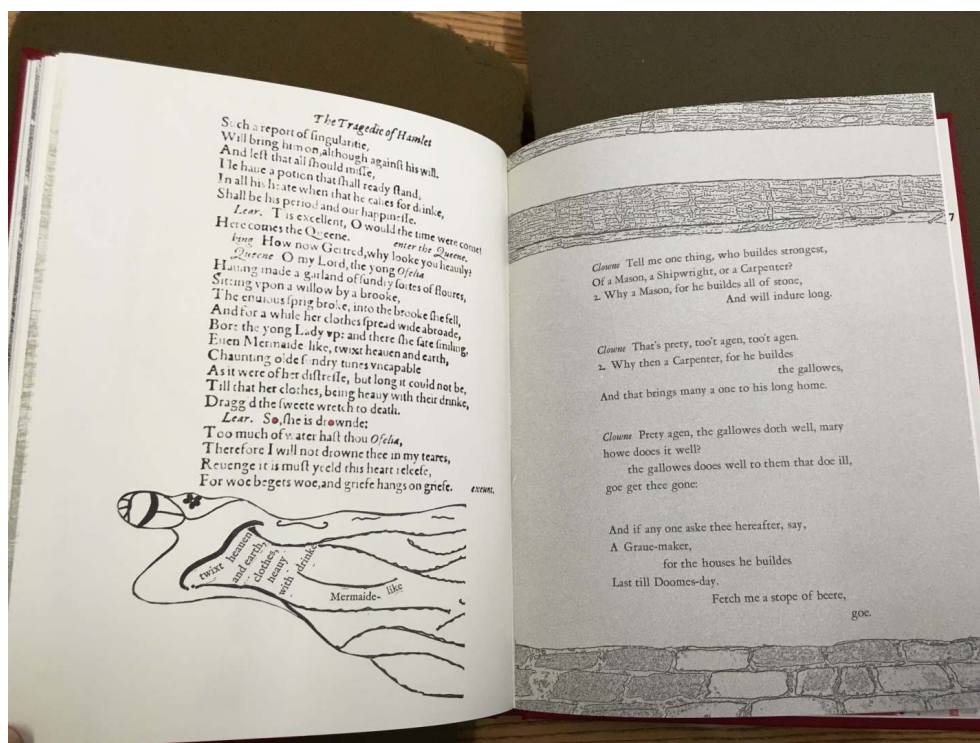 The Tragedie of Hamlet
Such a report of ſingularitie,
Will bring him on, although againſt his will.
And leſt that all ſhould miſſe,
Ile haue a potion that ſhall ready ſtand,
In all his heate when that he calles for drinke,
Shall be his period and our happineſſe.
Lear. T is excellent, O would the time were come!
Here comes the Queene. enter the Queene.
king How now Gertred, why looke you heauily?
Queene O my Lord, the yong Ofelia
Hauing made a garland of ſundry ſortes of floures,
Sitting vpon a willow by a brooke,
The enuious ſprig broke, into the brooke ſhe fell,
And for a while her clothes ſpread wide abroade,
Bore the yong Lady vp: and there ſhe ſate ſmiling,
Euen Mermaide like, twixt heauen and earth,
Chaunting olde ſundry tunes vncapable
As it were of her diſtreſſe, but long it could not be,
Till that her clothes, being heauy with their drinke,
Dragg'd the ſweete wretch to death.
Lear. So, ſhe is drownde:
Too much of water haſt thou Ofelia,
Therefore I will not drowne thee in my teares,
Reuenge it is muſt yeeld this heart releeſe,
For woe begets woe, and griefe hangs on griefe. exeunt.
twixt heauen
and earth,
clothes,
heauy
with drinke
Mermaide-like
7
Clowne Tell me one thing, who buildes strongest,
Of a Mason, a Shipwright, or a Carpenter?
2. Why a Mason, for he buildes all of stone,
And will indure long.
Clowne That's prety, too't agen, too't agen.
2. Why then a Carpenter, for he buildes
the gallowes,
And that brings many a one to his long home.
Clowne Prety agen, the gallowes doth well, mary
howe dooes it well?
the gallowes dooes well to them that doe ill,
goe get thee gone:
And if any one aske thee hereafter, say,
A Graue-maker,
for the houses he buildes
Last till Doomes-day.
Fetch me a stope of beere,
goe.